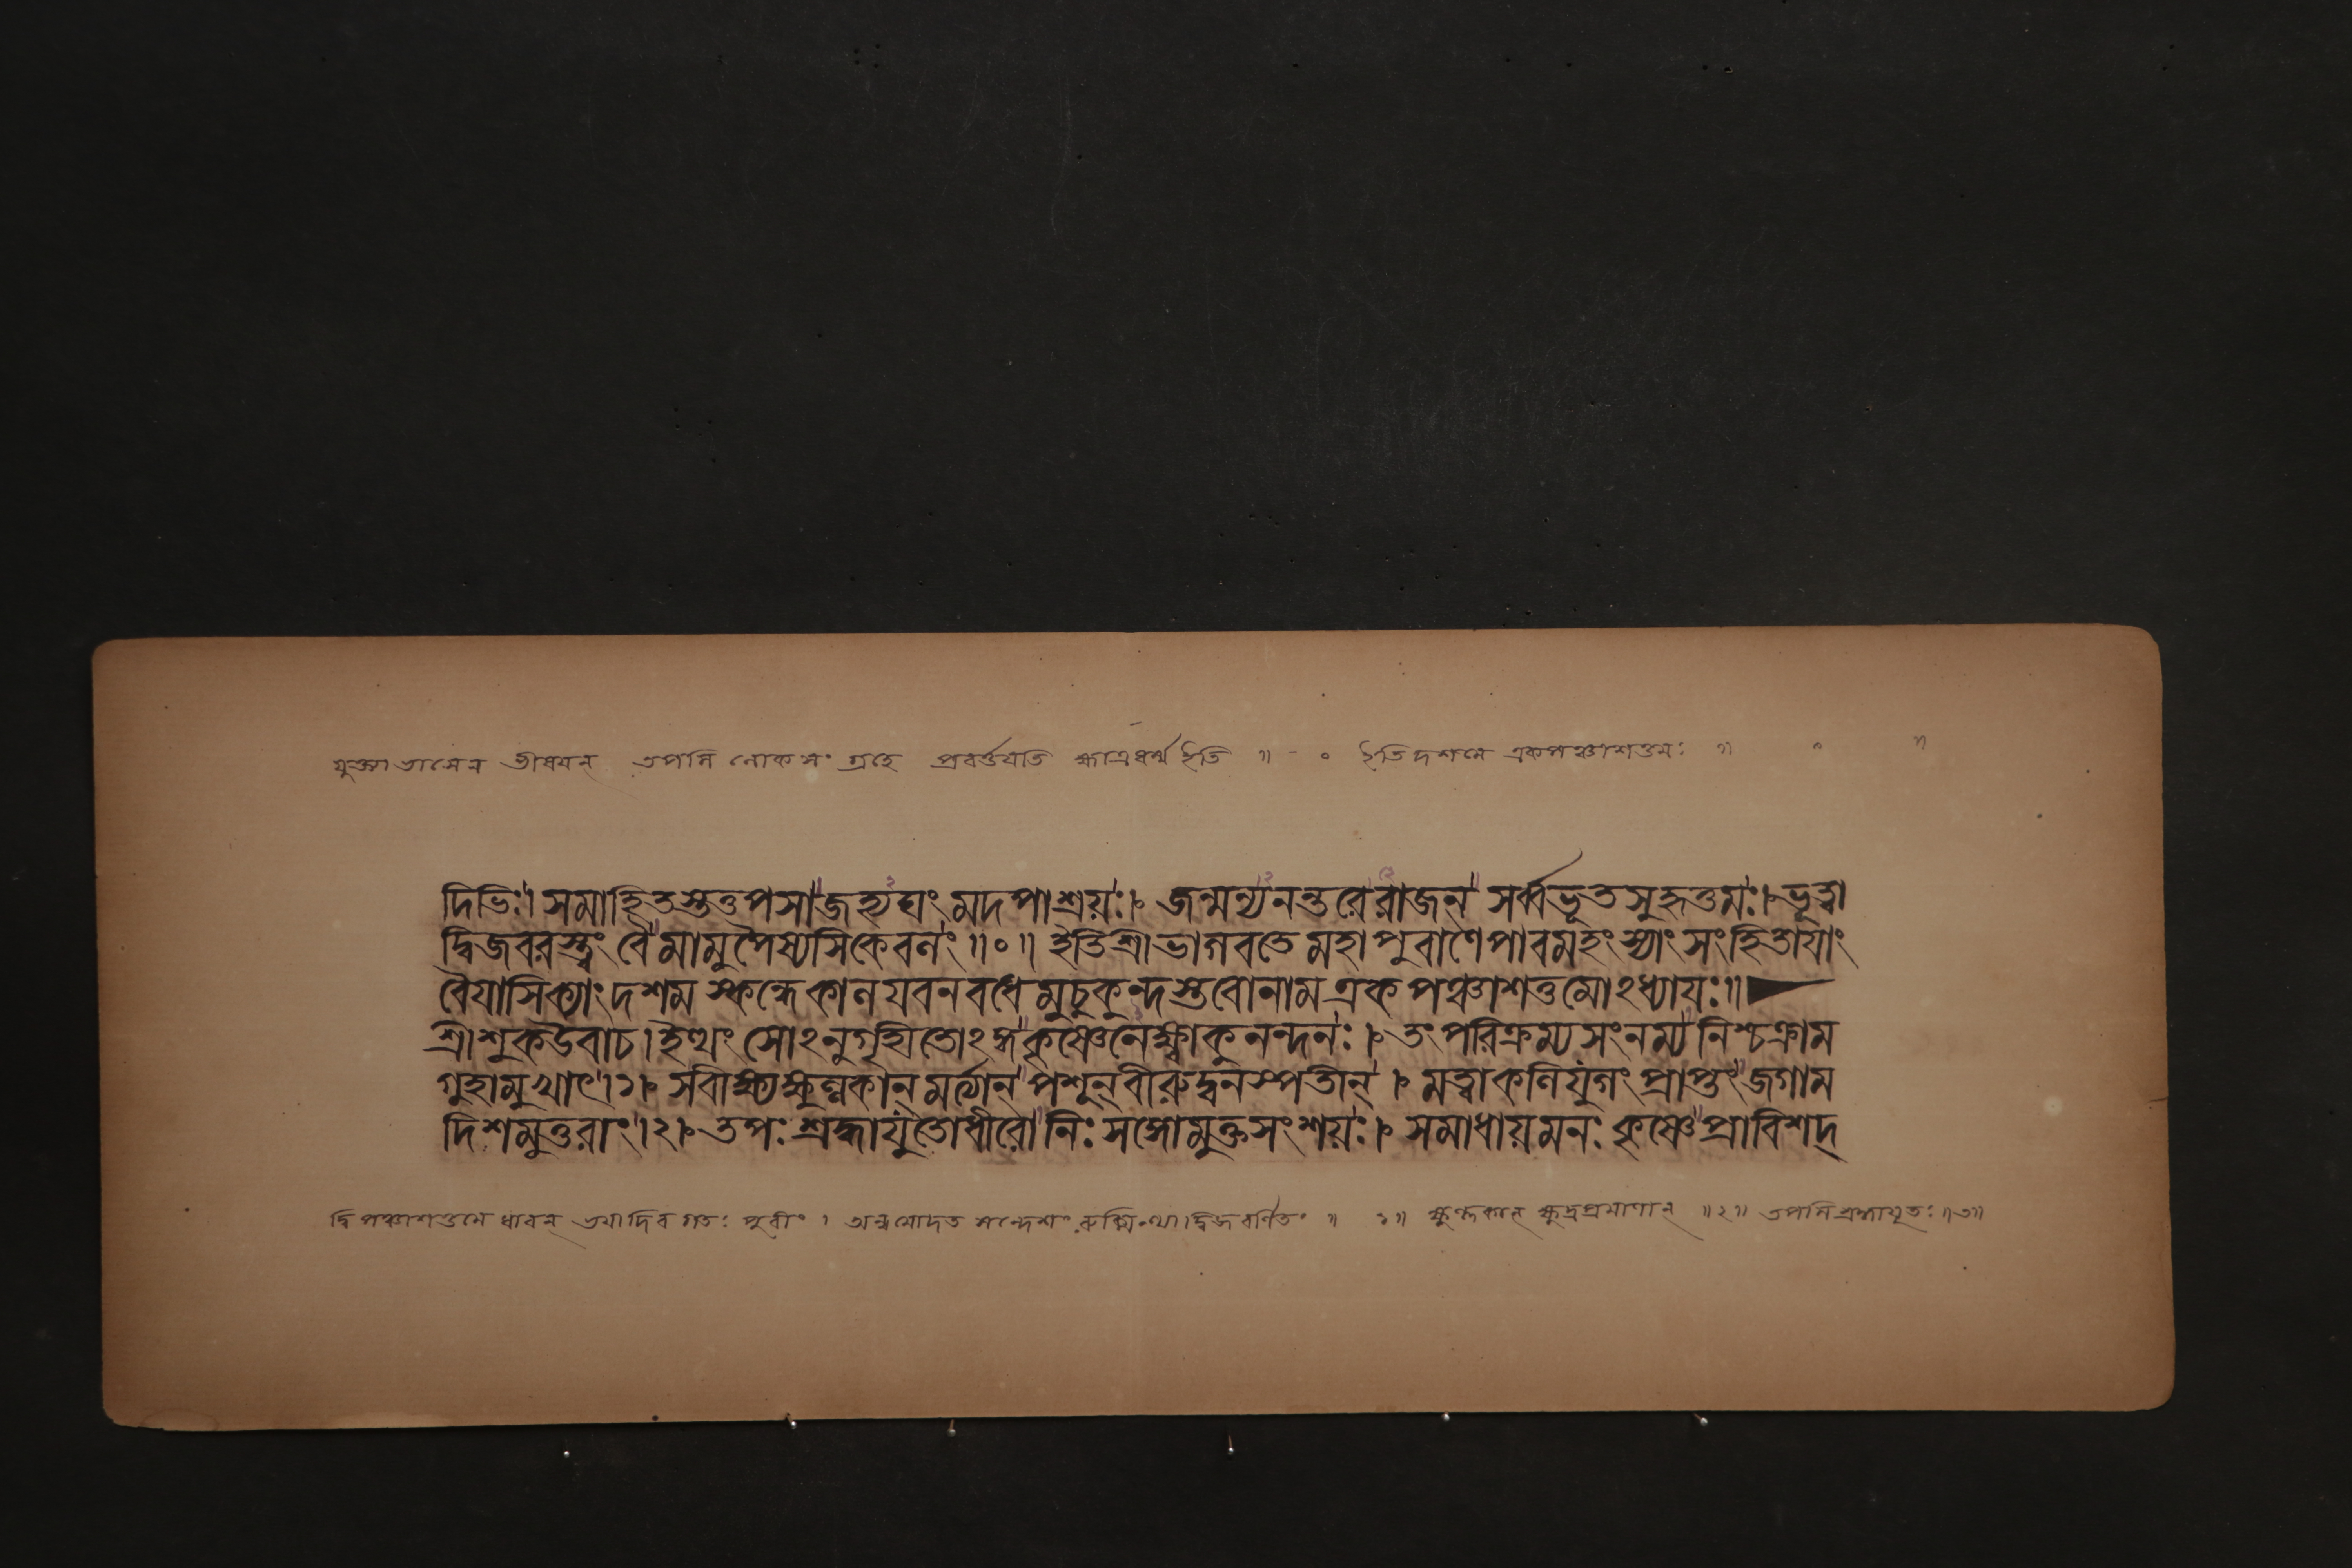 ইতি দশমে একপঞ্চাশত্তমঃ ॥
দিভিঃ। সমাহিতস্তত্তপসা জহ্যঘং মদপাশ্রয়ঃ।৷ জন্মন্যনন্তরে রাজন্ সর্ব্বভূতসুহৃত্তমঃ।৷ ভূত্বা
দ্বিজবরস্ত্বং বৈ মামুপৈষ্যসি কেবলং ॥০॥ ইতি শ্রীভাগবতে মহাপুরাণে পারমহংস্যাং সংহিতায়াং
বৈয়াসিক্যাং দশমস্কন্ধে কালযবনবধে মুচুকুন্দস্তবোনাম একপঞ্চাশত্তমোঽধ্যায়ঃ॥
শ্রীশুকউবাচ। ইত্থং সোঽনুগৃহীতোঽঙ্গ কৃষ্ণেনেক্ষ্বাকুনন্দনঃ।৷ তং পরিক্রম্য সংনম্য নিশ্চক্রাম
গুহামুখাৎ।১।৷ সবীক্ষ্য ক্ষুল্লকান্ মর্ত্যান্ পশূন্ বীরুদ্বনস্পতীন্।৷ মত্বা কলিযুগং প্রাপ্তং জগাম
দিশমুত্তরাং।২।৷ তপঃ শ্রদ্ধাযুতোধীরো নিঃসঙ্গোমুক্তসংশয়ঃ।৷ সমাধায় মনঃ কৃষ্ণে প্রাবিশদ্
দ্বিপঞ্চাশত্তমে ধাবন্ ভয়াদিব গতঃ পুরীং। সন্দেশং রুক্মিণ্যা দ্বিজবর্ণিতং ॥ ১॥ ক্ষুল্লকান্ ক্ষুদ্রপ্রমাণান্ ॥২॥ তপসি শ্রদ্ধাযুতঃ ॥৩॥